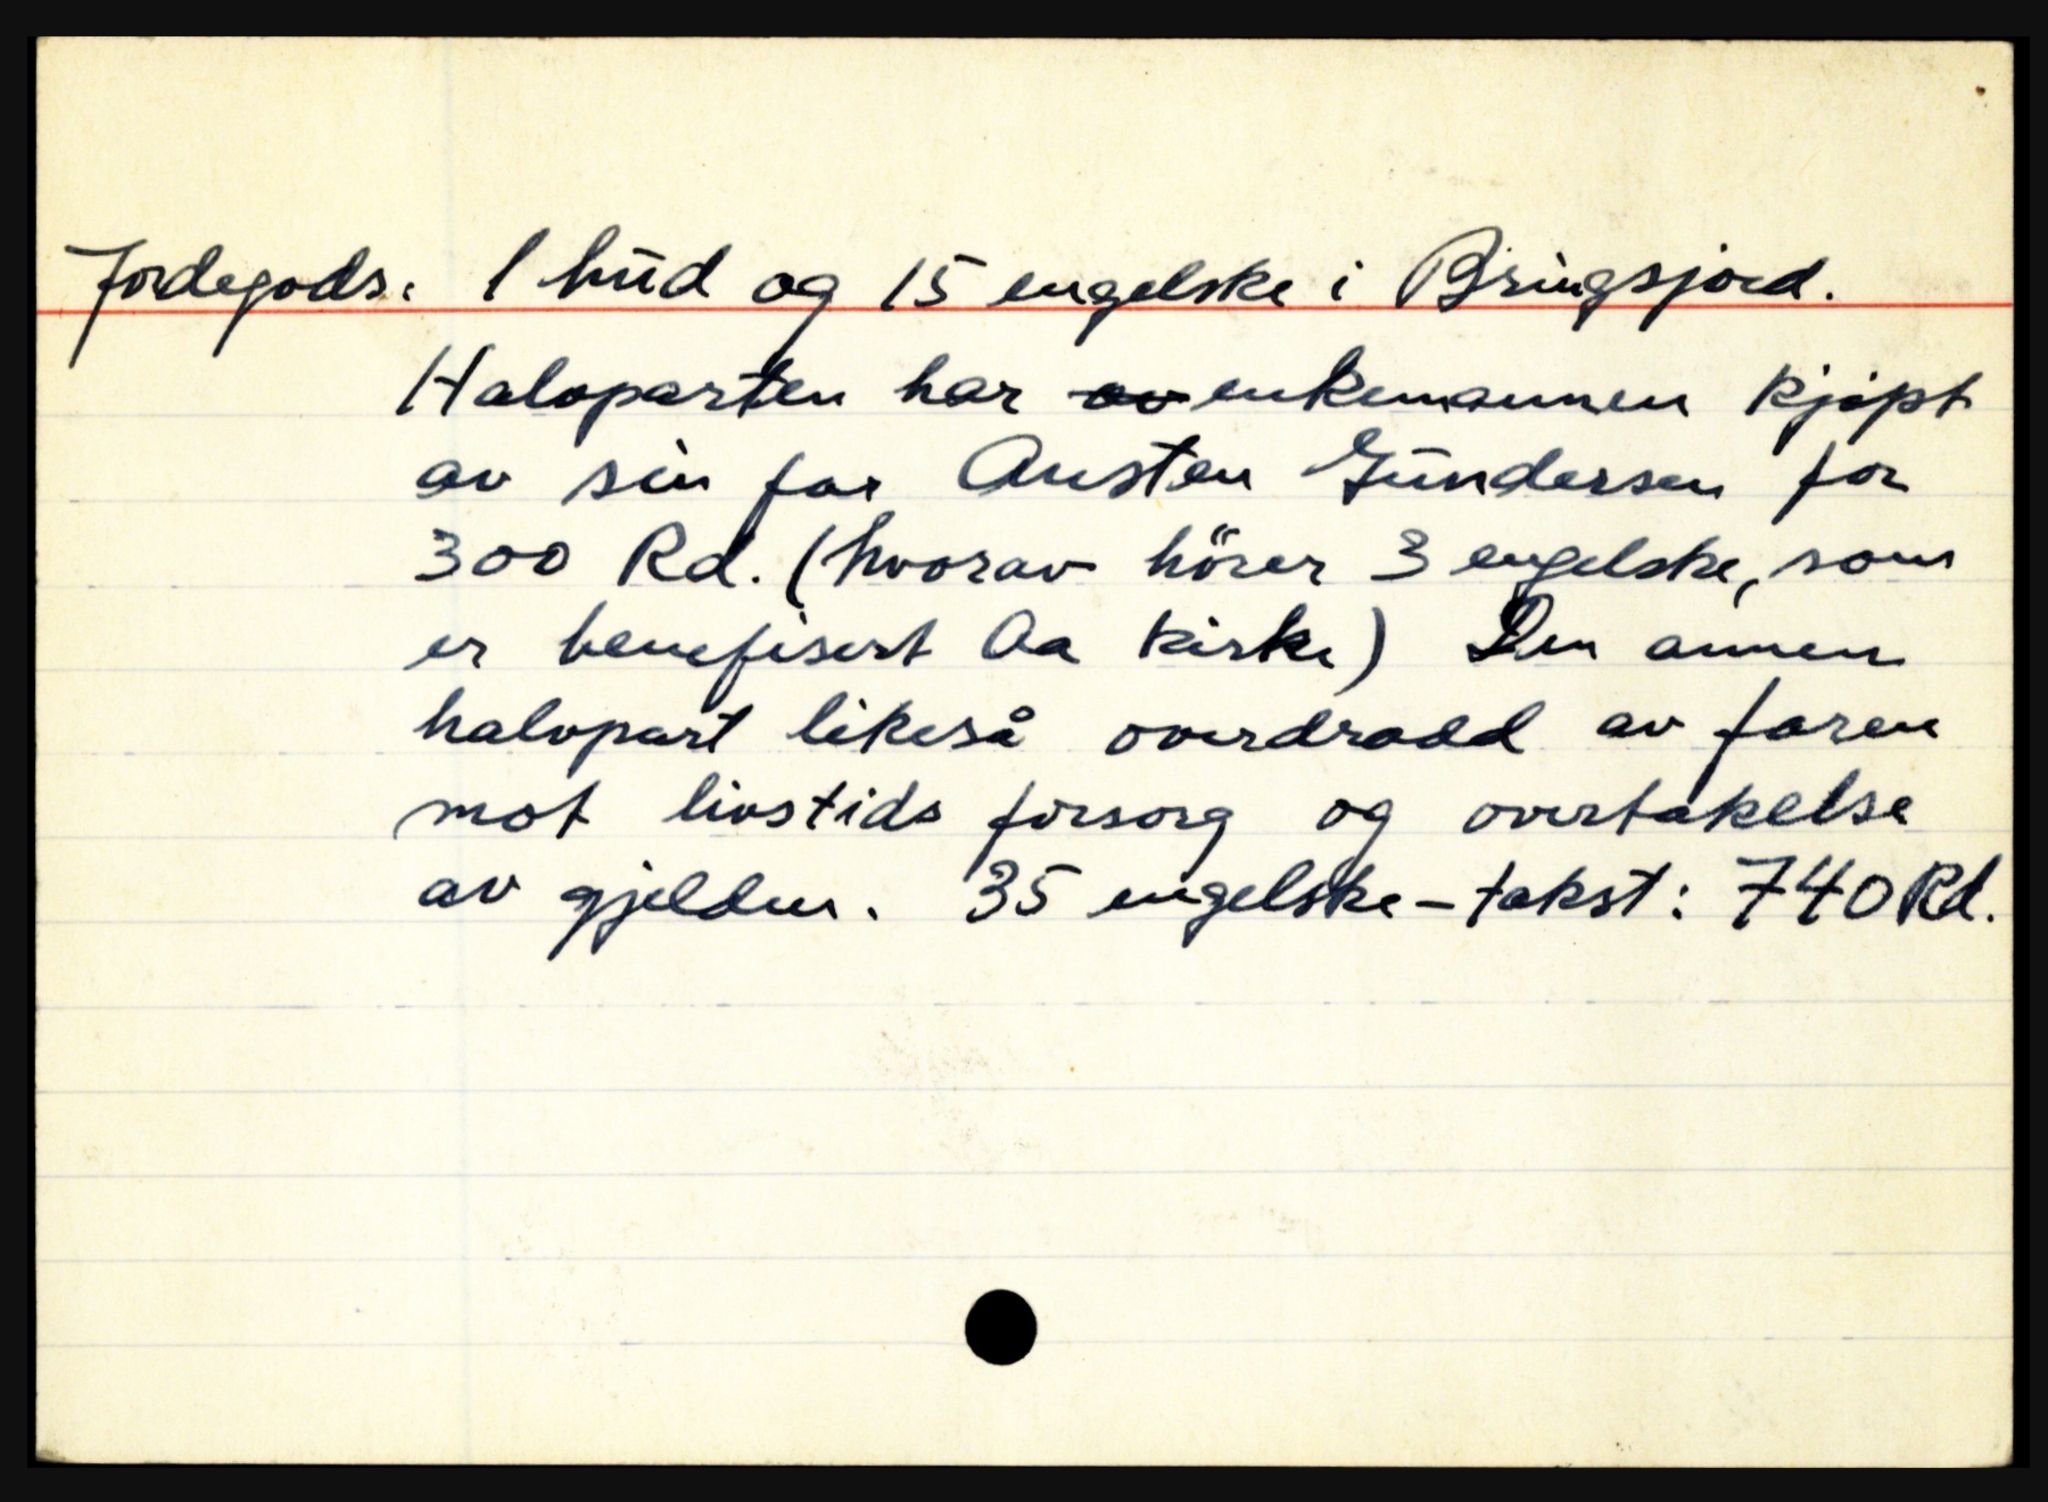 Jordegods. 1 hud og 15 engelske i Bringsjord.
Halvparten har ~~av~~ enkemannen kjøpt
av sin far Austen Gundersen for
300 Rd. (hvorav hörer 3 engelske, som
er benefisert Aa kirke) Den annen
halvpart likeså overdradd av faren
mot livstids forsorg og overtakelse
av gjelden. 35 engelske - takst: 740 Rd.